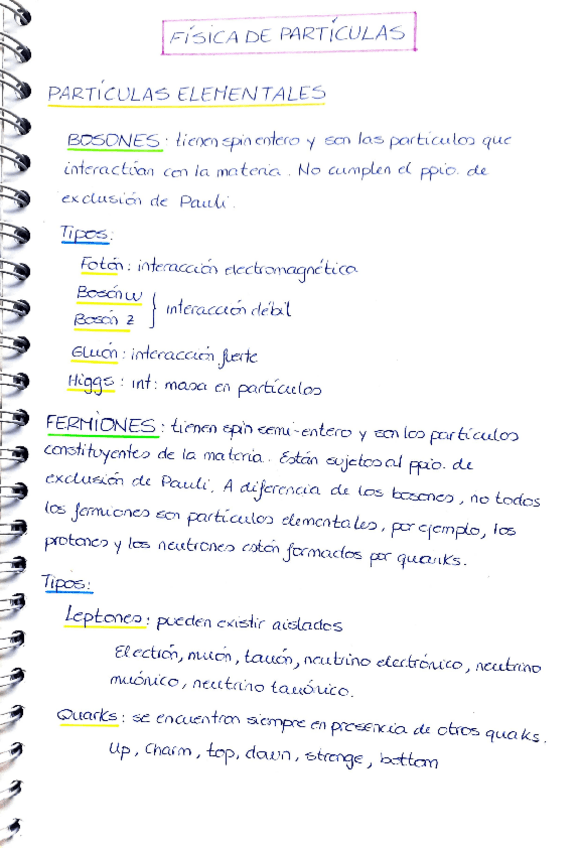 FÍSICA DE PARTÍCULAS
PARTÍCULAS ELEMENTALES
BOSONES: tienen spin entero y son las partículas que
interactúan con la materia. No cumplen el ppio. de
exclusión de Pauli.
Tipos:
Fotón: interacción electromagnética
Bosón W
Bosón Z } interacción débil
Gluón: interacción fuerte
Higgs: int: masa en partículas
FERMIONES: tienen spin semi-entero y son las partículas
constituyentes de la materia. Están sujetos al ppio. de
exclusión de Pauli. A diferencia de los bosones, no todos
los fermiones son partículas elementales, por ejemplo, los
protones y los neutrones están formados por quarks.
Tipos:
Leptones: pueden existir aislados
Electrón, muón, tauón, neutrino electrónico, neutrino
muónico, neutrino tauónico.
Quarks: se encuentran siempre en presencia de otros quaks.
Up, Charm, top, down, strange, bottom